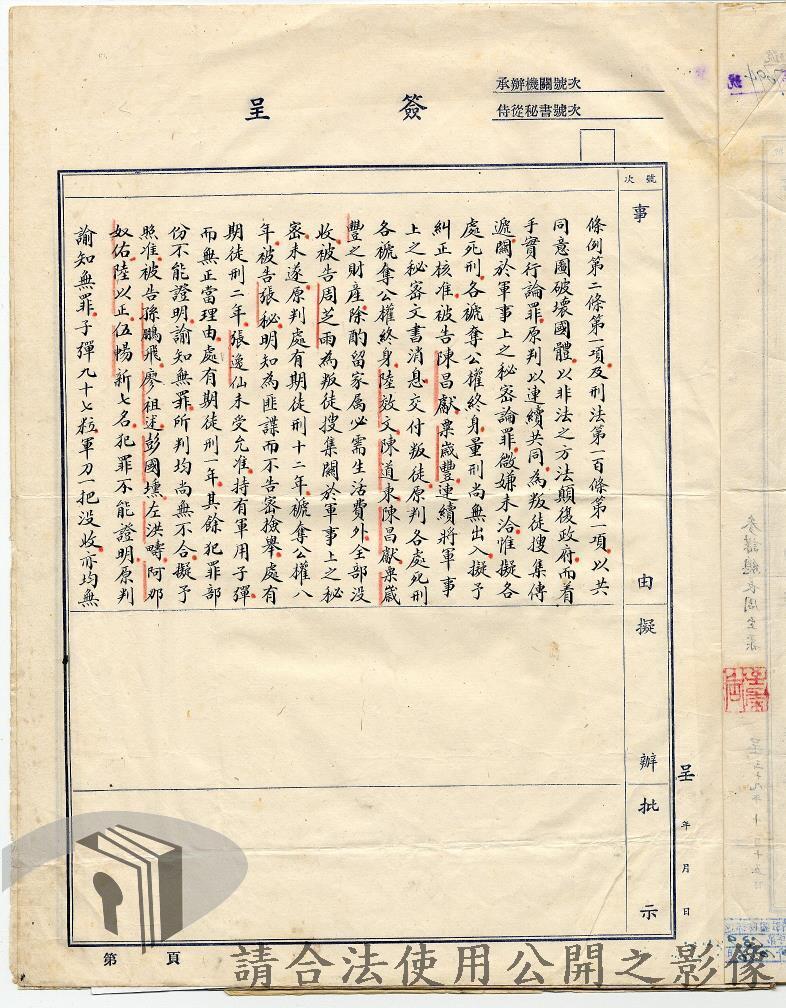 承辦機關號次
侍從秘書號次
簽呈
號次
事由
擬辦
批示
條例第二條第一項及刑法第一百條第一項以共
同意圖破壞國體以非法之方法顛復政府而着
手實行論罪原判以連續共同為叛徒搜集傳
遞關於軍事上之秘密論罪微嫌未洽惟擬各
處死刑各褫奪公權終身量刑尚無出入擬予
糾正核准被告陳昌獻粟歲豐連續將軍事
上之秘密文書消息交付叛徒原判各處死刑
各褫奪公權終身陸效文陳道東陳昌獻粟歲
豐之財產除酌留家属必需生活費外全部没
收被告周芝雨為叛徒搜集關於軍事上之秘
密未遂原判處有期徒刑十二年褫奪公權八
年被告張秘明知為匪諜而不告密檢舉處有
期徒刑二年張逸仙未受允准持有軍用子彈
而無正當理由處有期徒刑一年其餘犯罪部
份不能證明諭知無罪所判均尚無不合擬予
照准被告孫鵬飛廖祖述彭國壎左洪疇阿那
奴佑陸以正伍暢新七名犯罪不能證明原判
諭知無罪子彈九十七粒軍刀一把没收亦均無
呈 年 月 日
第 頁
參謀總長周至柔
呈
請合法使用公開之影像